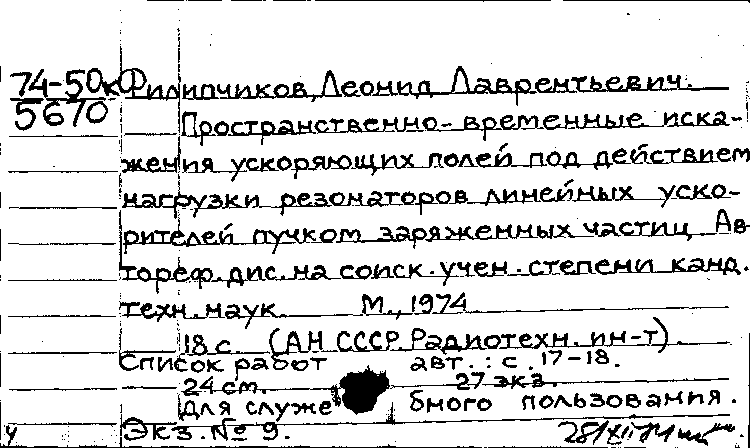 74-50к Филипчиков, Леонид Лаврентьевич.
5670
Пространственно-временные иска-
жения ускоряющих полей под действием
нагрузки резонаторов линейных уско-
рителей пучком заряженных частиц. Ав
тореф. дис. на соиск. учен. степени канд.
техн. наук. М., 1974
18 с. (АН СССР. Радиотехн. ин-т).
Список работ авт.: с. 17-18.
24 см. 27 экз.
Для служебного пользования.
Экз. № 9.